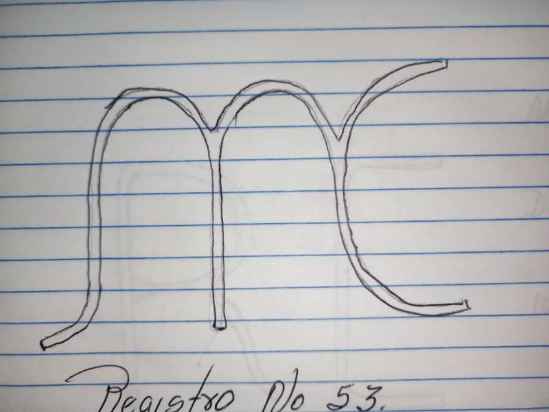 Registro No 53.